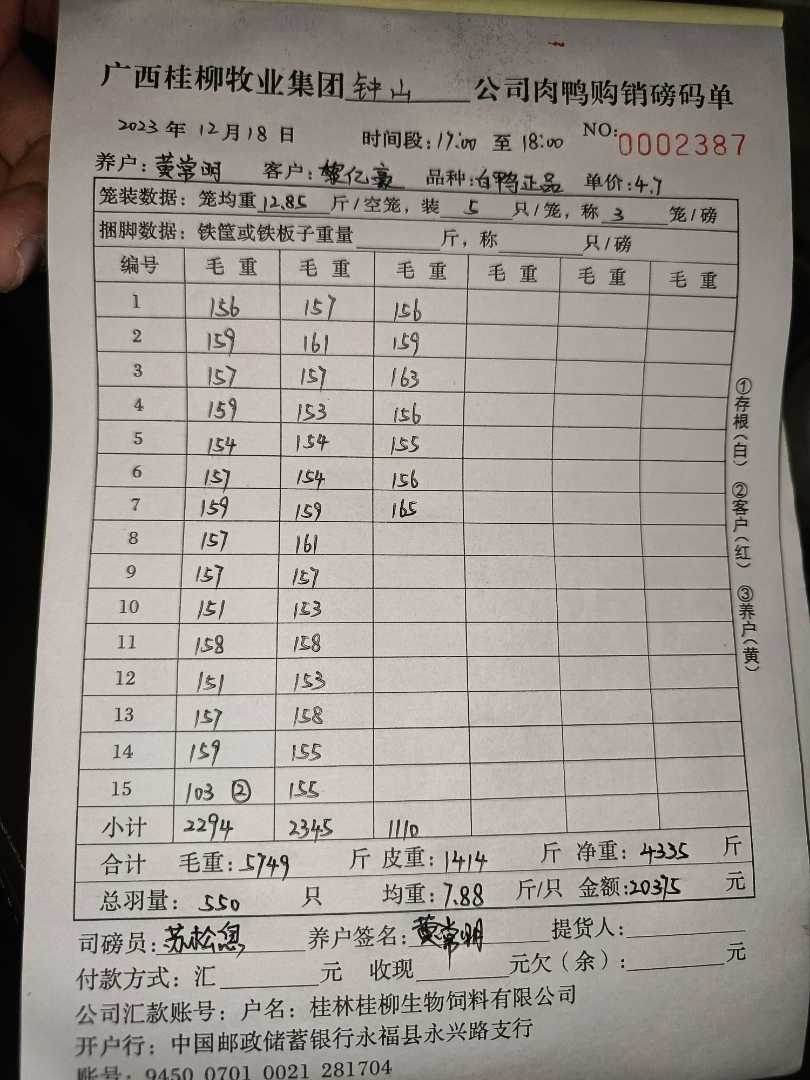 广西桂柳牧业集团 钟山 公司肉鸭购销磅码单
2023 年 12 月 18 日 时间段: 17:00 至 18:00 NO: 0002387
养户: 黄常明 客户: 黎亿豪 品种: 白鸭正品 单价: 4.7
笼装数据: 笼均重 12.85 斤/空笼, 装 5 只/笼, 称 3 笼/磅
捆脚数据: 铁筐或铁板子重量 斤, 称 只/磅
编号 毛重 毛重 毛重 毛重 毛重 毛重
1 156 157 156
2 159 161 159
3 157 157 163
4 159 153 156
5 154 154 155
6 157 154 156
7 159 159 165
8 157 161
9 157 157
10 151 153
11 158 158
12 151 153
13 157 158
14 159 155
15 103 ② 155
小计 2294 2345 1110
合计 毛重: 5749 斤 皮重: 1414 斤 净重: 4335 斤
总羽量: 550 只 均重: 7.88 斤/只 金额: 20375 元
司磅员: 苏松 养户签名: 黄常明 提货人:
付款方式: 汇 元 收现 元欠(余): 元
公司汇款账号: 户名: 桂林桂柳生物饲料有限公司
开户行: 中国邮政储蓄银行永福县永兴路支行
账号: 9450 0701 0021 281704
①存根(白) ②客户(红) ③养户(黄)